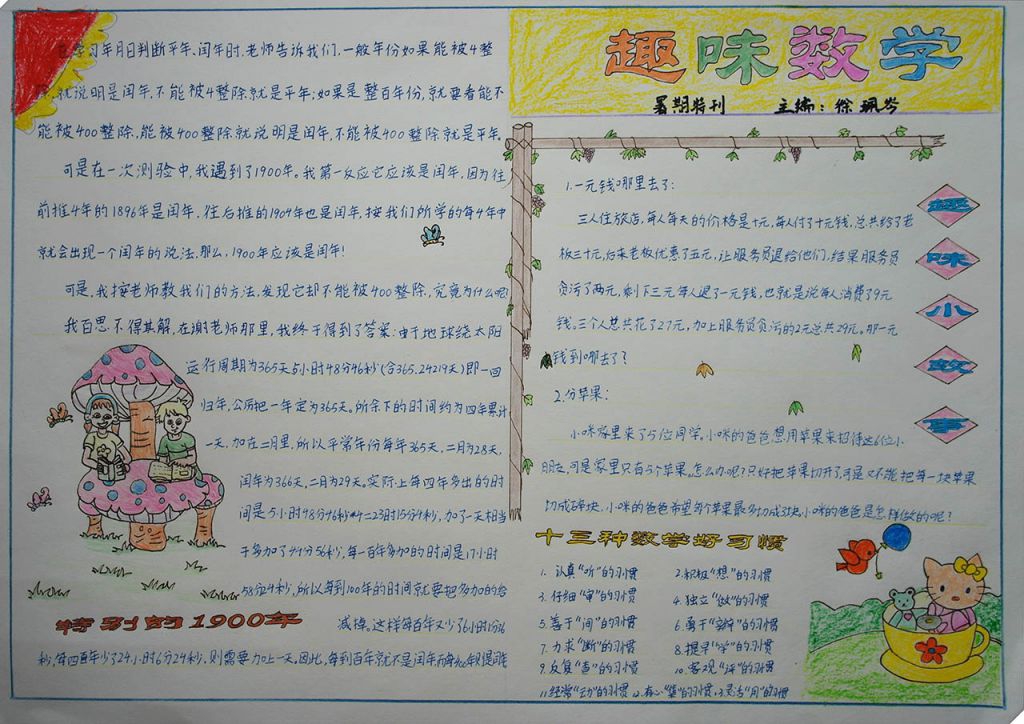 在学习年月日判断平年、闰年时,老师告诉我们,一般年份如果能被4整
除,就说明是闰年,不能被4整除就是平年;如果是整百年份,就要看能不
能被400整除,能被400整除就说明是闰年,不能被400整除就是平年。
可是在一次测验中,我遇到了1900年。我第一反应它应该是闰年,因为往
前推4年的1896年是闰年,往后推的1904年也是闰年,按我们所学的每4年中
就会出现一个闰年的说法,那么,1900年应该是闰年!
可是,我按老师教我们的方法,发现它却不能被400整除,究竟为什么呢?
我百思不得其解,在谢老师那里,我终于得到了答案:由于地球绕太阳
运行周期为365天5小时48分46秒(合365.24219天)即一回
归年,公历把一年定为365天。所余下的时间约为四年累计
一天,加在二月里,所以平常年份每年365天,二月为28天,
闰年为366天,二月为29天。实际上每四年多出的时
间是5小时48分46秒*4=23时15分4秒,加了一天相当
于多加了44分56秒,每一百年多加的时间是17小时
58分4秒,所以每到100年的时间就要把多加的给
减掉。这样每百年又少了6小时1分36
秒,每四百年少了24小时6分24秒,则需要加上一天。因此,每到百年就不是闰年而每
特别的1900年
趣味数学
暑期特刊 主编:徐珮岑
1.一元钱哪里去了:
三人住旅店,每人每天的价格是十元,每人付了十元钱,总共给了老
板三十元,后来老板优惠了五元,让服务员退给他们,结果服务员
贪污了两元,剩下三元每人退了一元钱,也就是说每人消费了9元
钱。三个人总共花了27元,加上服务员贪污的2元总共29元。那一元
钱到哪去了?
2.分苹果:
小咪家里来了5位同学。小咪的爸爸想用苹果来招待这6位小
朋友,可是家里只有5个苹果。怎么办呢?只好把苹果切开了,可是又不能把每一块苹果
切成碎块,小咪的爸爸希望每个苹果最多切成3块。小咪的爸爸是怎样做的呢?
趣
味
小
故
事
十三种数学好习惯
1. 认真“听”的习惯 2.积极“想”的习惯
3. 仔细“审”的习惯 4. 独立“做”的习惯
5.善于“问”的习惯 6.勇于“辩”的习惯
7.力求“断”的习惯 8.提早“学”的习惯
9.反复“查”的习惯 10.客观“评”的习惯
11.经常“动”的习惯 12.有心“集”的习惯 13.灵活“用”的习惯